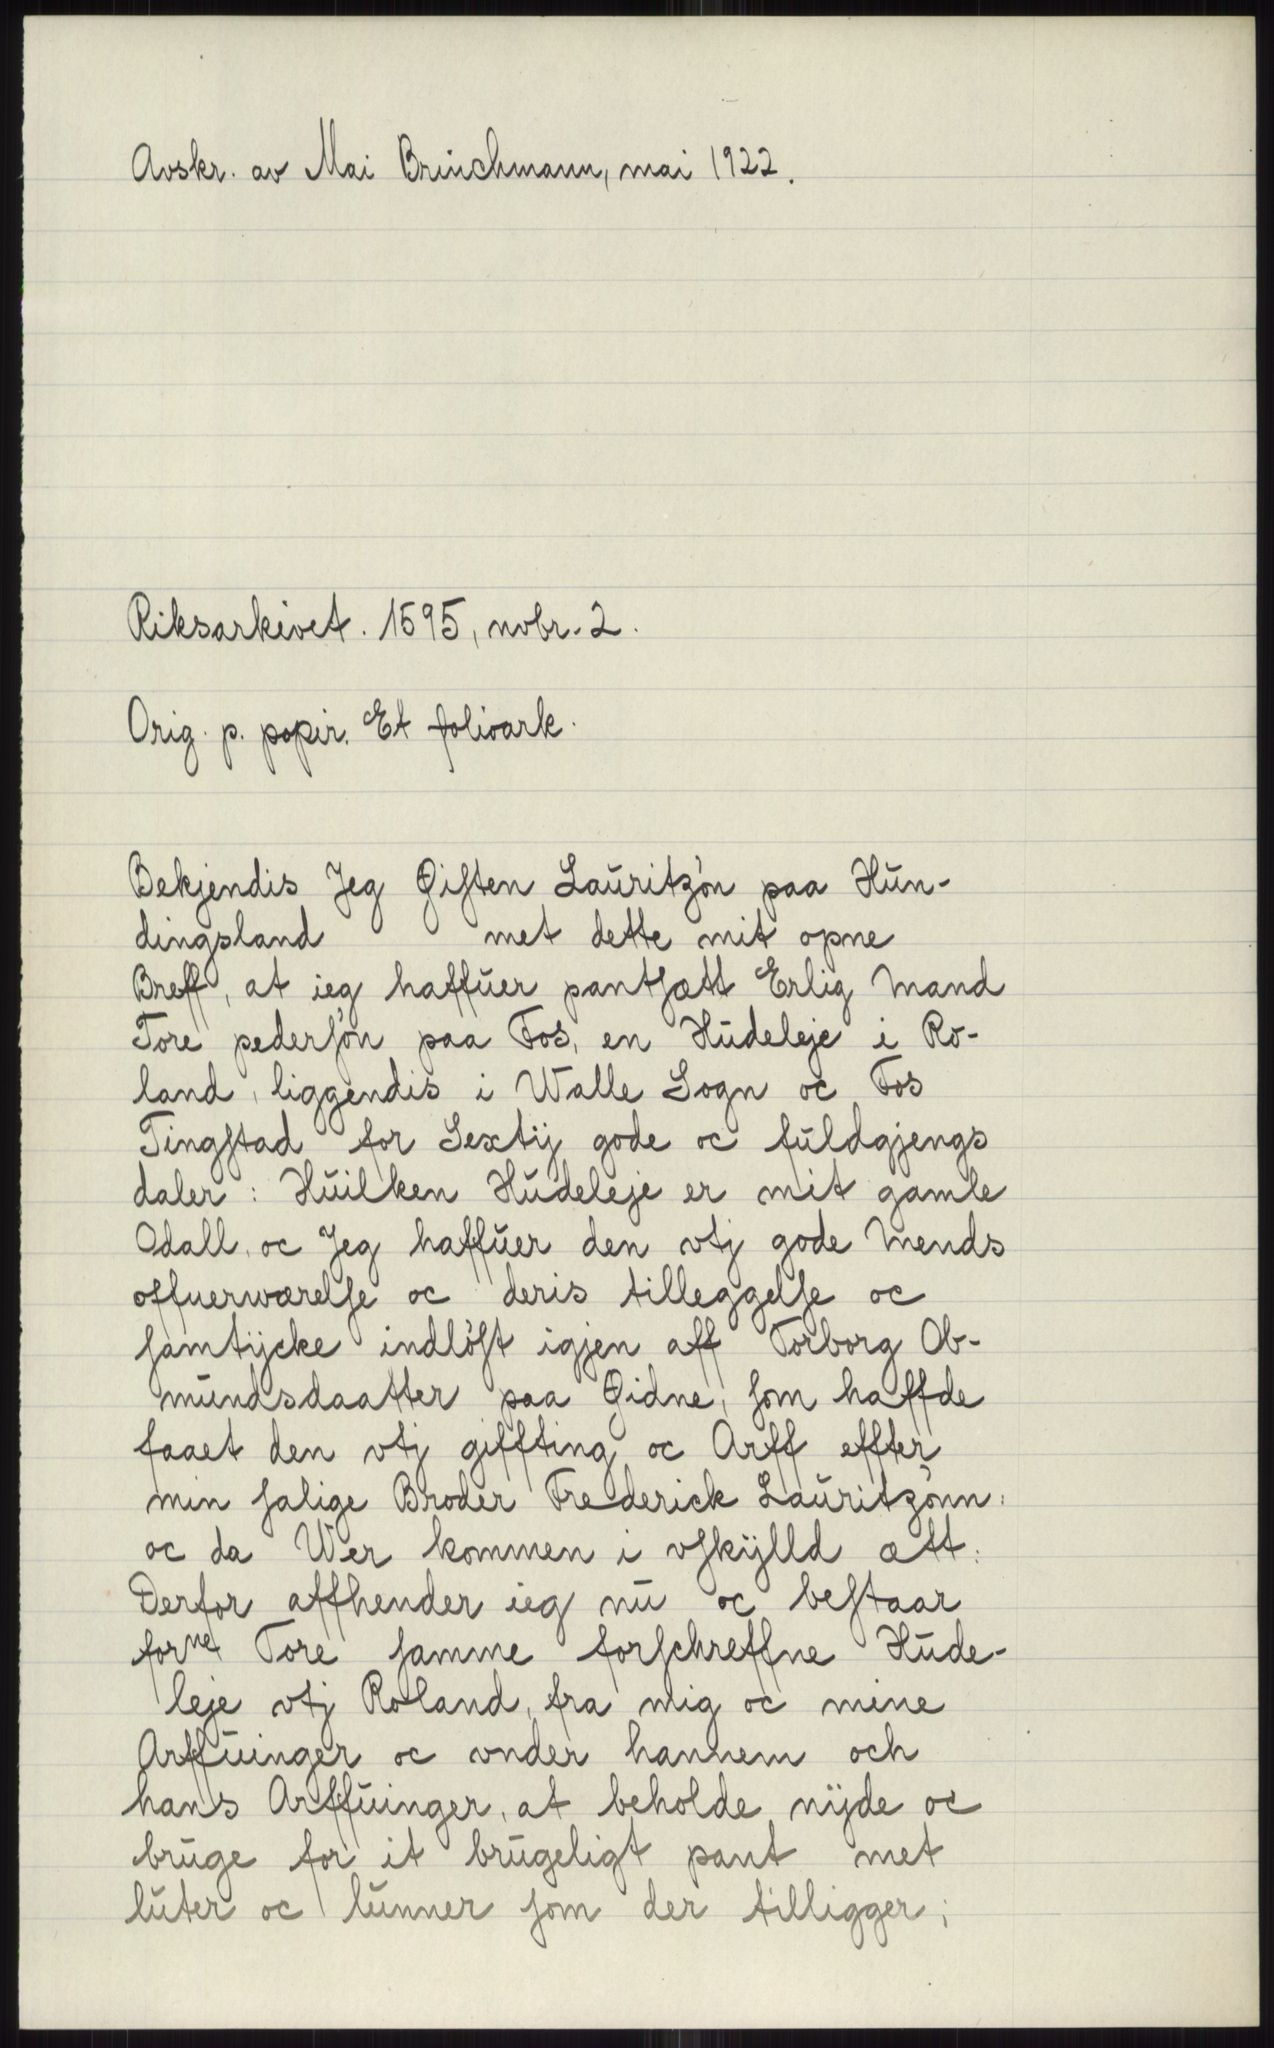 Avskr. av Mai Brinchmann, mai 1922.
Riksarkivet. 1595, nvbr. 2.
Orig. p. papir. Et folioark.
Bekjendis Jeg Øiſten Laŭritzøn paa Hŭn-
dingsland met dette mit opne
Breff, at ieg haffŭer pantſætt Erlig Mand
Tore pederſøn paa Fos, en Hŭdeleje i Ro-
land, liggendis i Walle Sogn oc Fos
Tingſtad for Sextij gode oc fŭldgjengs
daler: Hŭilken Hŭdeleje er mit gamle
Odall, oc Jeg haffŭer den vtj gode Mends
offuerwærelſe oc deris tilleggelſe oc
ſamtÿcke indløſt igjen aff Torborg Ob-
mŭndsdaatter paa Øidne, ſom haffde
faaet den vtj giffting oc Arff effter
min ſalige Broder Frederick Laŭritzønn:
oc da Wer kommen i vſkÿlld ætt:
Derfor affhender ieg nŭ oc beſtaar
forne Tore ſamme forſchreffne Hŭde-
leje vtj Roland, fra mig oc mine
Arffŭinger oc vnder hannem och
hans Arffŭinger, at beholde nÿde oc
brŭge for it brŭgeligt pant met
lŭter oc lŭnner ſom der tilligger;